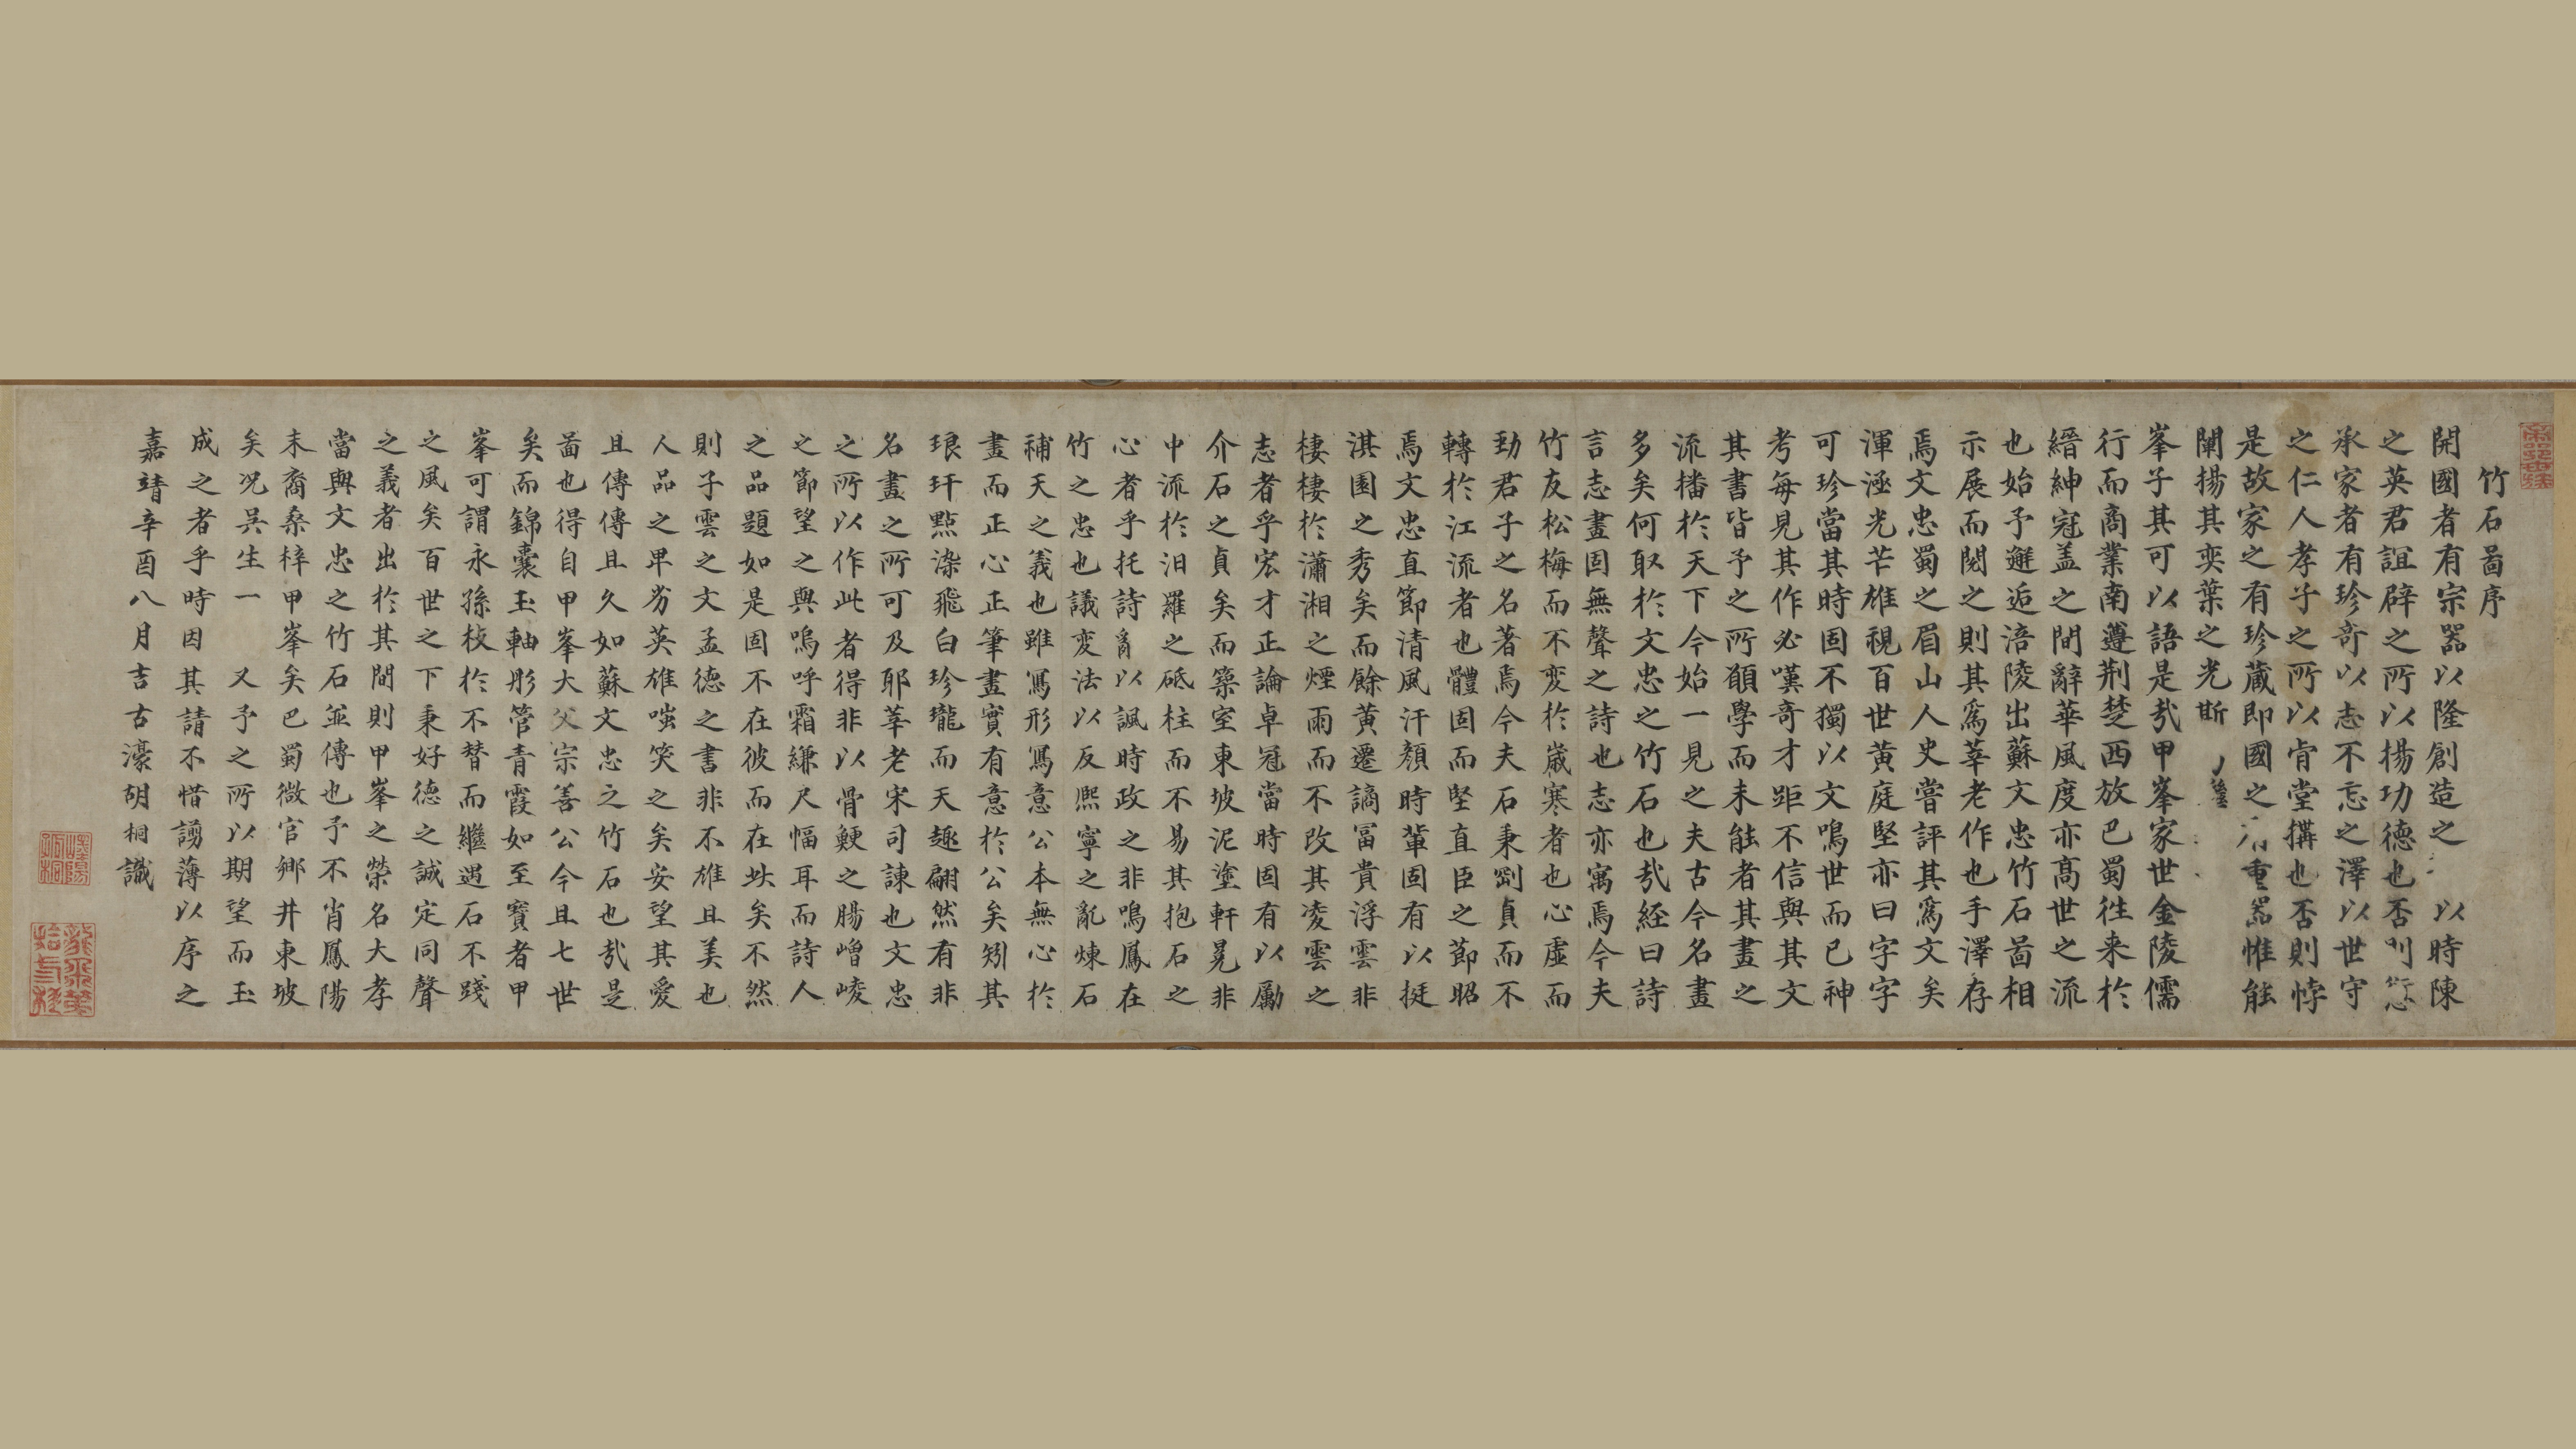 竹石啚序
開國者有宗器以隆創造之以時陳
之英君誼辟之所以揚功德也否則
承家者有珍奇以志不忘之澤以世守
之仁人孝子之所以肯堂搆也否則悖
是故家之有珍藏即國之有重器惟能
闡揚其奕葉之光斯
峯子其可以語是㢤甲峯家世金陵儒
行而商業南遵荆楚西放巴蜀徃来於
縉紳冠盖之間辭華風度亦髙世之流
也始予邂逅涪陵出蘇文忠竹石啚相
示展而閱之則其為莘老作也手澤存
焉文忠蜀之眉山人史嘗評其為文矣
渾涵光芒雄視百世黄庭堅亦曰字字
可珍當其時固不獨以文鳴世而已神
考每見其作必嘆奇才距不信與其文
其書皆予之所願學而未能者其畫之
流播於天下今始一見之夫古今名畫
多矣何取於文忠之竹石也㢤経曰詩
言志畫固無聲之詩也志亦寓焉今夫
竹友松梅而不变於嵗寒者也心虛而
勁君子之名著焉今夫石秉剛貞而不
轉於江流者也體固而堅直臣之節昭
焉文忠直節清風汗顔時軰固有以挺
淇園之秀矣而餘黄遷謫冨貴浮雲非
棲棲於瀟湘之煙雨而不改其凌雲之
志者乎宏才正論卓冠當時固有以勵
介石之貞矣而築室東坡泥塗軒冕非
中流於汨羅之砥柱而不易其抱石之
心者乎托詩亂以諷時政之非鳴鳳在
竹之忠也議变法以反熈寧之亂煉石
補天之義也雖寫形寫意公本無心於
畫而正心正筆畫實有意於公矣矧其
琅玕點染飛白玲瓏而天趣翩然有非
名畫之所可及耶莘老宋司諫也文忠
之所以作此者得非以骨鯁之腸嶒崚
之節望之與嗚呼霜縑尺幅耳而詩人
之品題如是固不在彼而在此矣不然
則子雲之文孟德之書非不雄且美也
人品之卑劣英雄嗤笑之矣安望其愛
且傳傳且久如蘇文忠之竹石也㢤是
啚也得自甲峯大父宗善公今且七世
矣而錦囊玉軸彤管青霞如至寶者甲
峯可謂永孫枝於不替而繼遇石不踐
之風矣百世之下秉好德之誠定同聲
之義者出於其間則甲峯之榮名大孝
當與文忠之竹石並傳也予不肖鳳陽
末裔桑梓甲峯矣巴蜀微官鄉井東坡
矣况吳生一又予之所以期望而玉
成之者乎時因其請不惜謭薄以序之
嘉靖辛酉八月吉古濠胡桐識